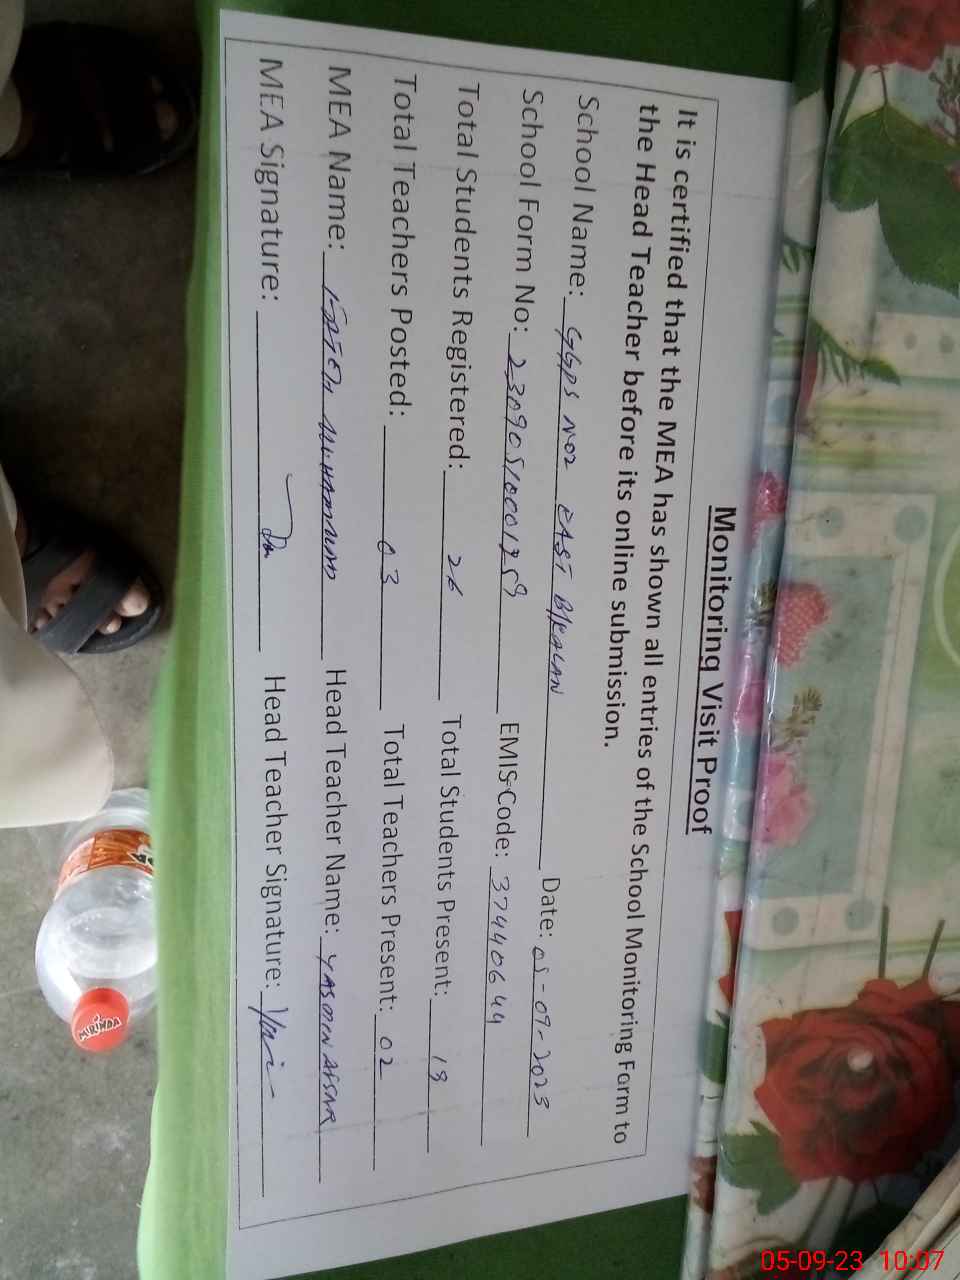 Monitoring Visit Proof
It is certified that the MEA has shown all entries of the School Monitoring Form to
the Head Teacher before its online submission.
School Name: GGPS NO2 EAST Date: 05-09-2023
School Form No: 230905100017 EMIS Code: 37440644
Total Students Registered: 26 Total Students Present: 18
Total Teachers Posted: 03 Total Teachers Present: 02
MEA Name: FATEH MUHAMMAD Head Teacher Name: YASMIN AFSAR
MEA Signature: Head Teacher Signature:
MIRINDA
05-09-23 10:07